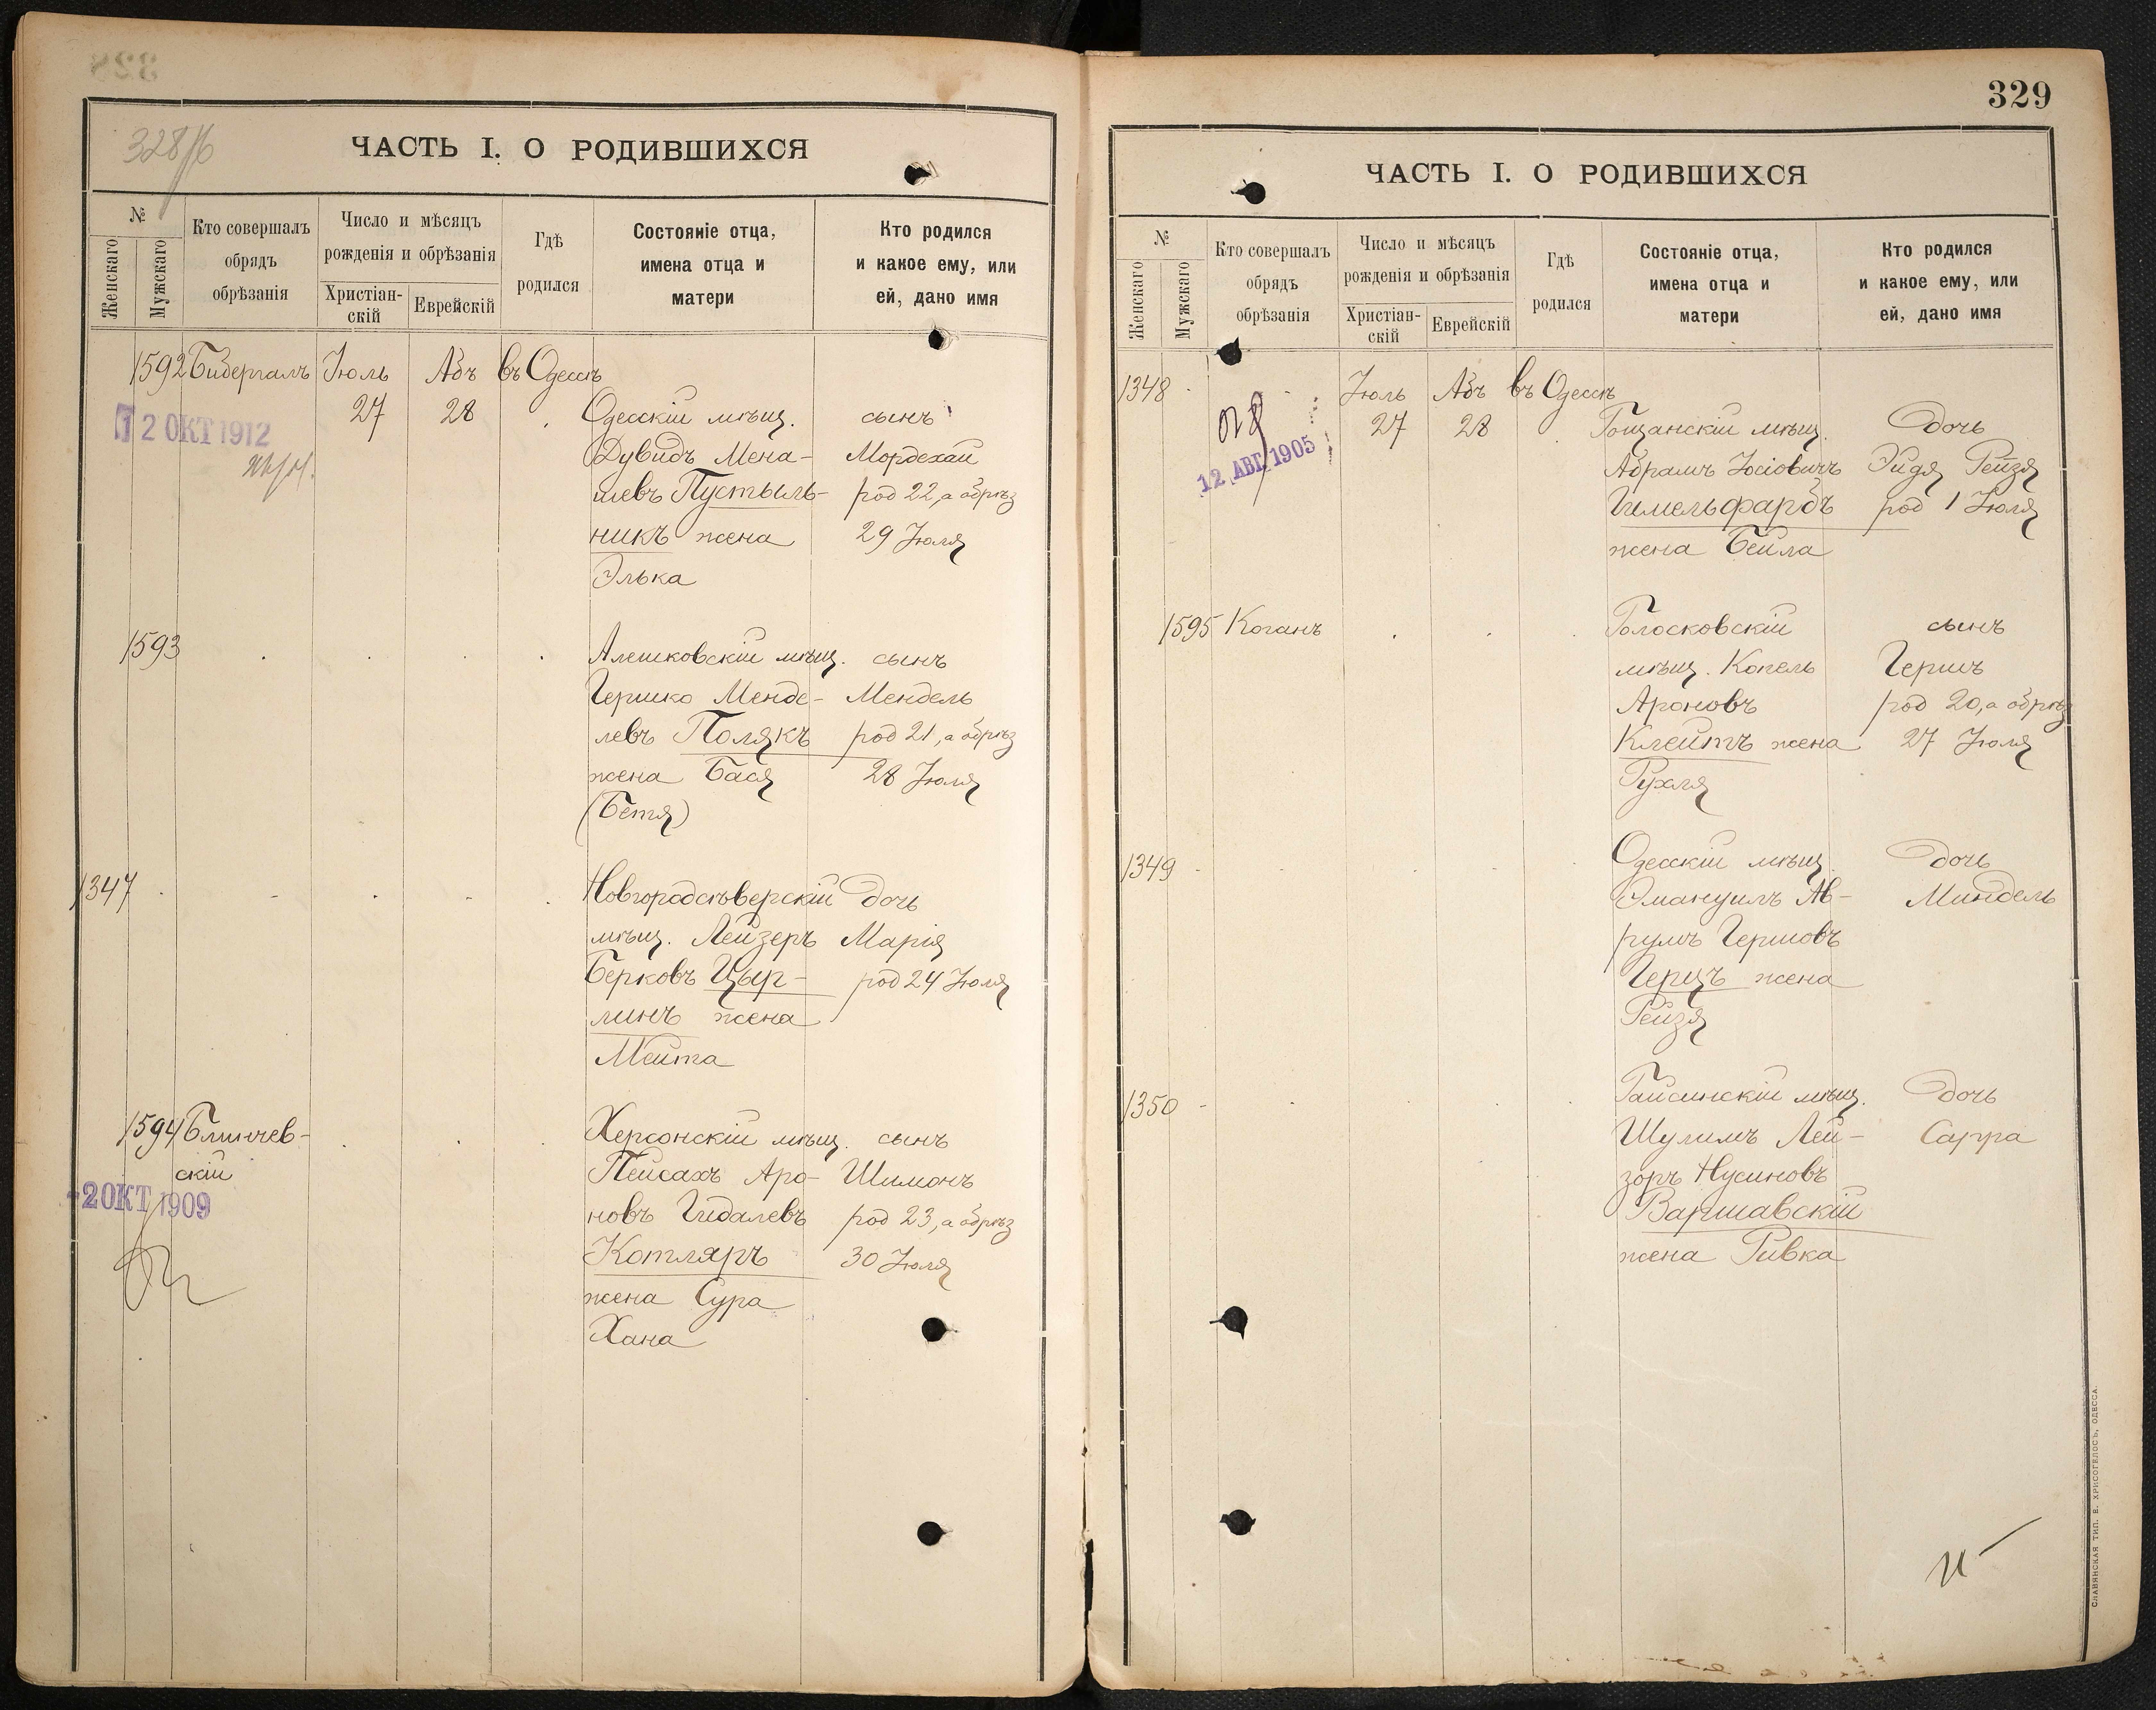 328/б
ЧАСТЬ I. О РОДИВШИХСЯ
№
Женскаго
Мужскаго
Кто совершалъ
обрядъ
обрѣзанія
Число и мѣсяцъ
рожденія и обрѣзанія
Христіан-
скій
Еврейскій
Гдѣ
родился
Состояніе отца,
имена отца и
матери
Кто родился
и какое ему, или
ей, дано имя
1592 Бидергалъ Іюль Абъ въ Одессѣ
12 ОКТ 1912
27 28
Одесскій мѣщ. сынъ
Дувидъ Мена- Мордехай
шевъ Пустыль- род 22, а обрѣз
никъ жена 29 Іюля
Элька
1593
Алешковскій мѣщ. сынъ
Гершко Менде- Мендель
левъ Полякъ род 21, а обрѣз
жена Бася 28 Іюля
(Бетя)
1347
Новгородсѣверскій дочь
мѣщ. Лейзеръ Марія
Берковъ Цыр- род 24 Іюля
линъ жена
Мейта
1594 Блинчев-
скій
2 ОКТ 1909
Херсонскій мѣщ. сынъ
Пейсахъ Аро- Шимонъ
новъ Гидалевъ род 23, а обрѣз
Котляръ 30 Іюля
жена Сура
Хана
329
ЧАСТЬ I. О РОДИВШИХСЯ
№
Женскаго
Мужскаго
Кто совершалъ
обрядъ
обрѣзанія
Число и мѣсяцъ
рожденія и обрѣзанія
Христіан-
скій
Еврейскій
Гдѣ
родился
Состояніе отца,
имена отца и
матери
Кто родился
и какое ему, или
ей, дано имя
1348 Іюль Абъ въ Одессѣ
12 АВГ 1905
27 28
Гощанскій мѣщ. дочь
Абрамъ Іосіовичъ Эйдя Рейзя
Гимельфарбъ род 1 Іюля
жена Бейла
1595 Коганъ
Голосковскій сынъ
мѣщ. Копель Гершъ
Ароновъ род 20, а обрѣз
Клейтъ жена 27 Іюля
Рухля
1349
Одесскій мѣщ. дочь
Эмануилъ Ав- Миндель
румъ Гершовъ
Герцъ жена
Рейзя
1350
Гайсинскій мѣщ. дочь
Шулимъ Лей- Сарра
зоръ Нусиновъ
Варшавскій
жена Ривка
СЛАВЯНСКАЯ ТИП. Е. ХРИСОГЕЛОСЪ, ОДЕССА.